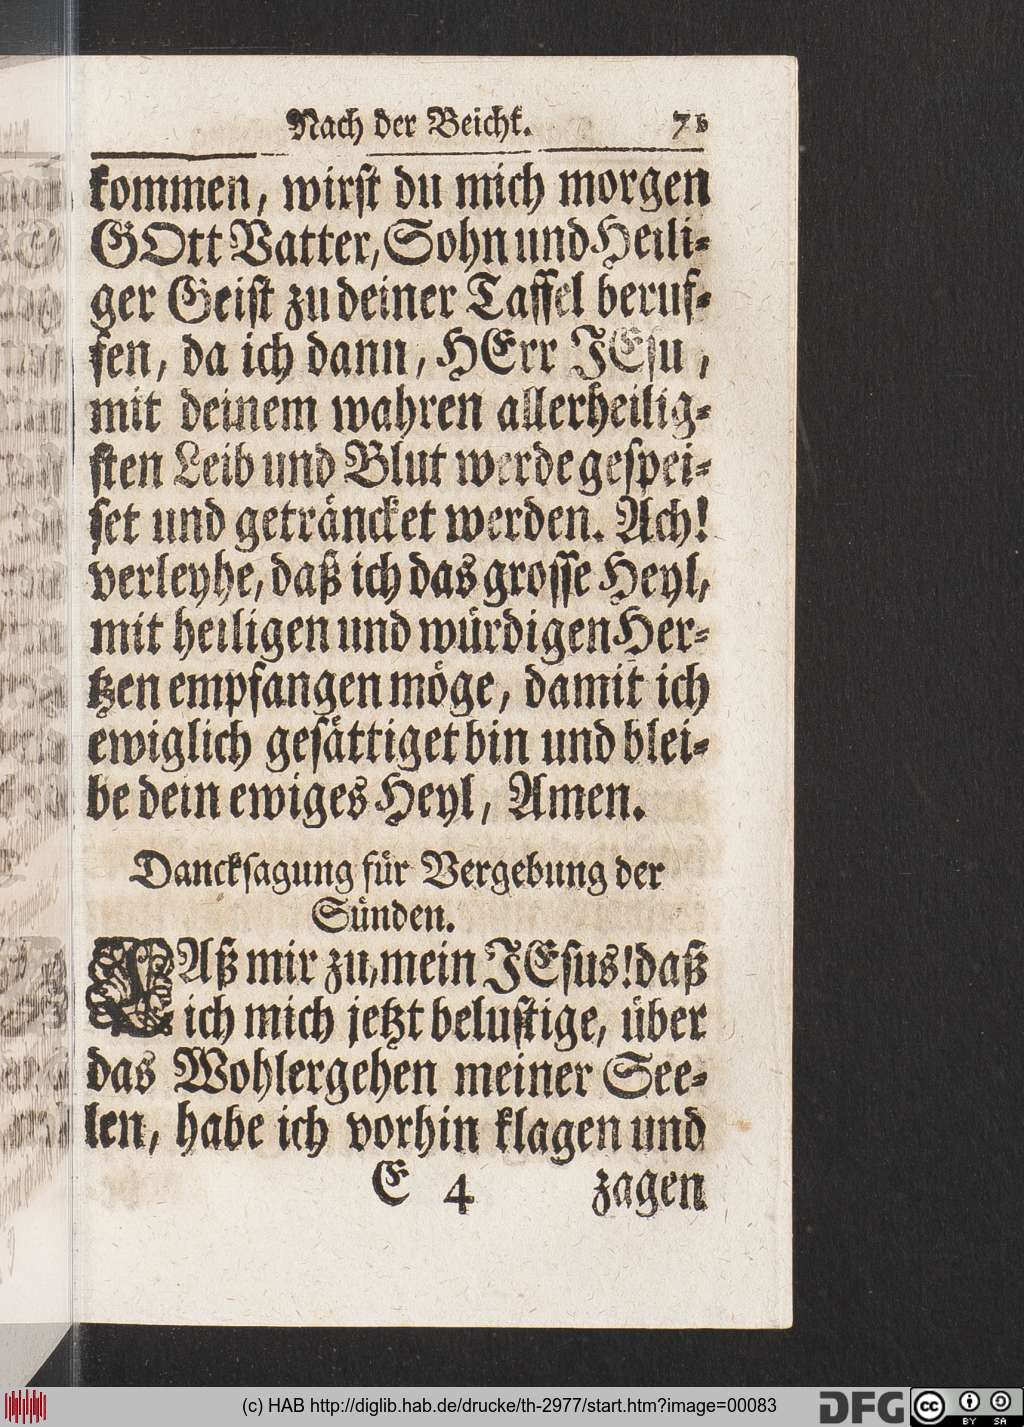 Nach der Beicht. 71
kommen, wirst du mich morgen
GOtt Vatter, Sohn und Heili-
ger Geist zu deiner Taffel beruf-
fen, da ich dann, HErr JEsu,
mit deinem wahren allerheilig-
sten Leib und Blut werde gespei-
set und geträncket werden. Ach!
verleyhe, daß ich das grosse Heyl,
mit heiligen und würdigen Her-
tzen empfangen möge, damit ich
ewiglich gesättiget bin und blei-
be dein ewiges Heyl, Amen.
Dancksagung für Vergebung der
Sünden.
LAß mir zu, mein JEsus! daß
ich mich jetzt belustige, über
das Wohlergehen meiner See-
len, habe ich vorhin klagen und
E 4 zagen
(c) HAB http://diglib.hab.de/drucke/th-2977/start.htm?image=00083
DFG
cc BY SA